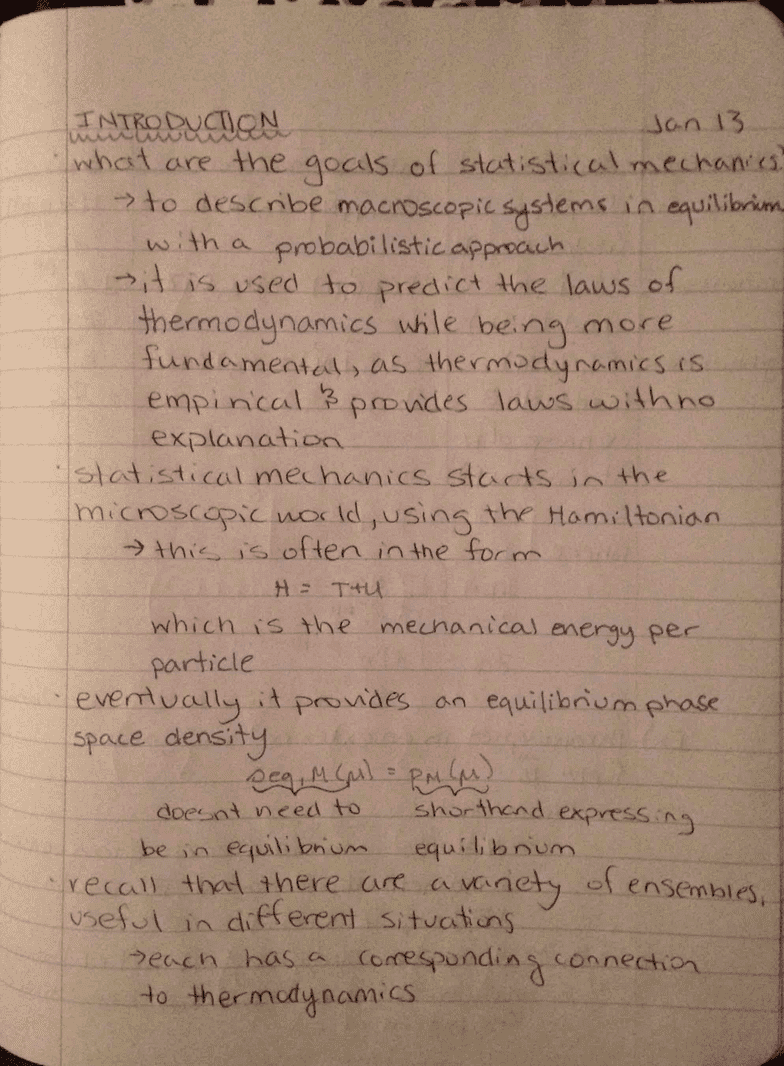 INTRODUCTION Jan 13
· what are the goals of statistical mechanics?
→ to describe macroscopic systems in equilibrium
with a probabilistic approach
→ it is used to predict the laws of
thermodynamics while being more
fundamental, as thermodynamics is
empirical & provides laws with no
explanation
· statistical mechanics starts in the
microscopic world, using the Hamiltonian
→ this is often in the form
H = T+U
which is the mechanical energy per
particle
· eventually it provides an equilibrium phase
space density
ρeq,M(μ) = PM(μ)
doesnt need to shorthand expressing
be in equilibrium equilibrium
· recall that there are a variety of ensembles,
useful in different situations
→ each has a corresponding connection
to thermodynamics